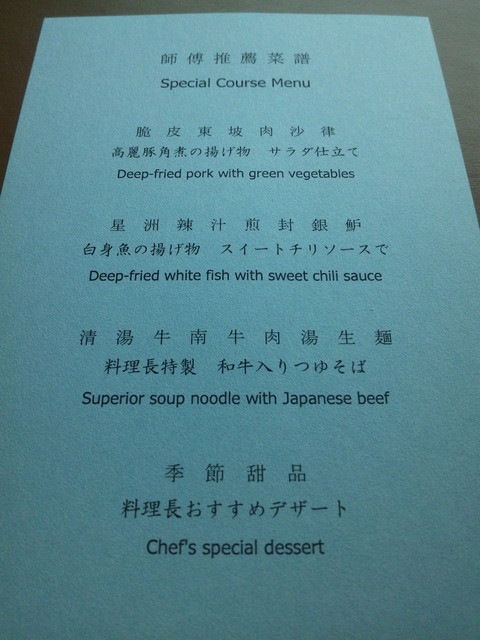 師傅推薦菜譜
Special Course Menu
脆皮東坡肉沙律
高麗豚角煮の揚げ物　サラダ仕立て
Deep-fried pork with green vegetables
星洲辣汁煎封銀鱸
白身魚の揚げ物　スイートチリソースで
Deep-fried white fish with sweet chili sauce
清湯牛南牛肉湯生麺
料理長特製　和牛入りつゆそば
Superior soup noodle with Japanese beef
季節甜品
料理長おすすめデザート
Chef's special dessert